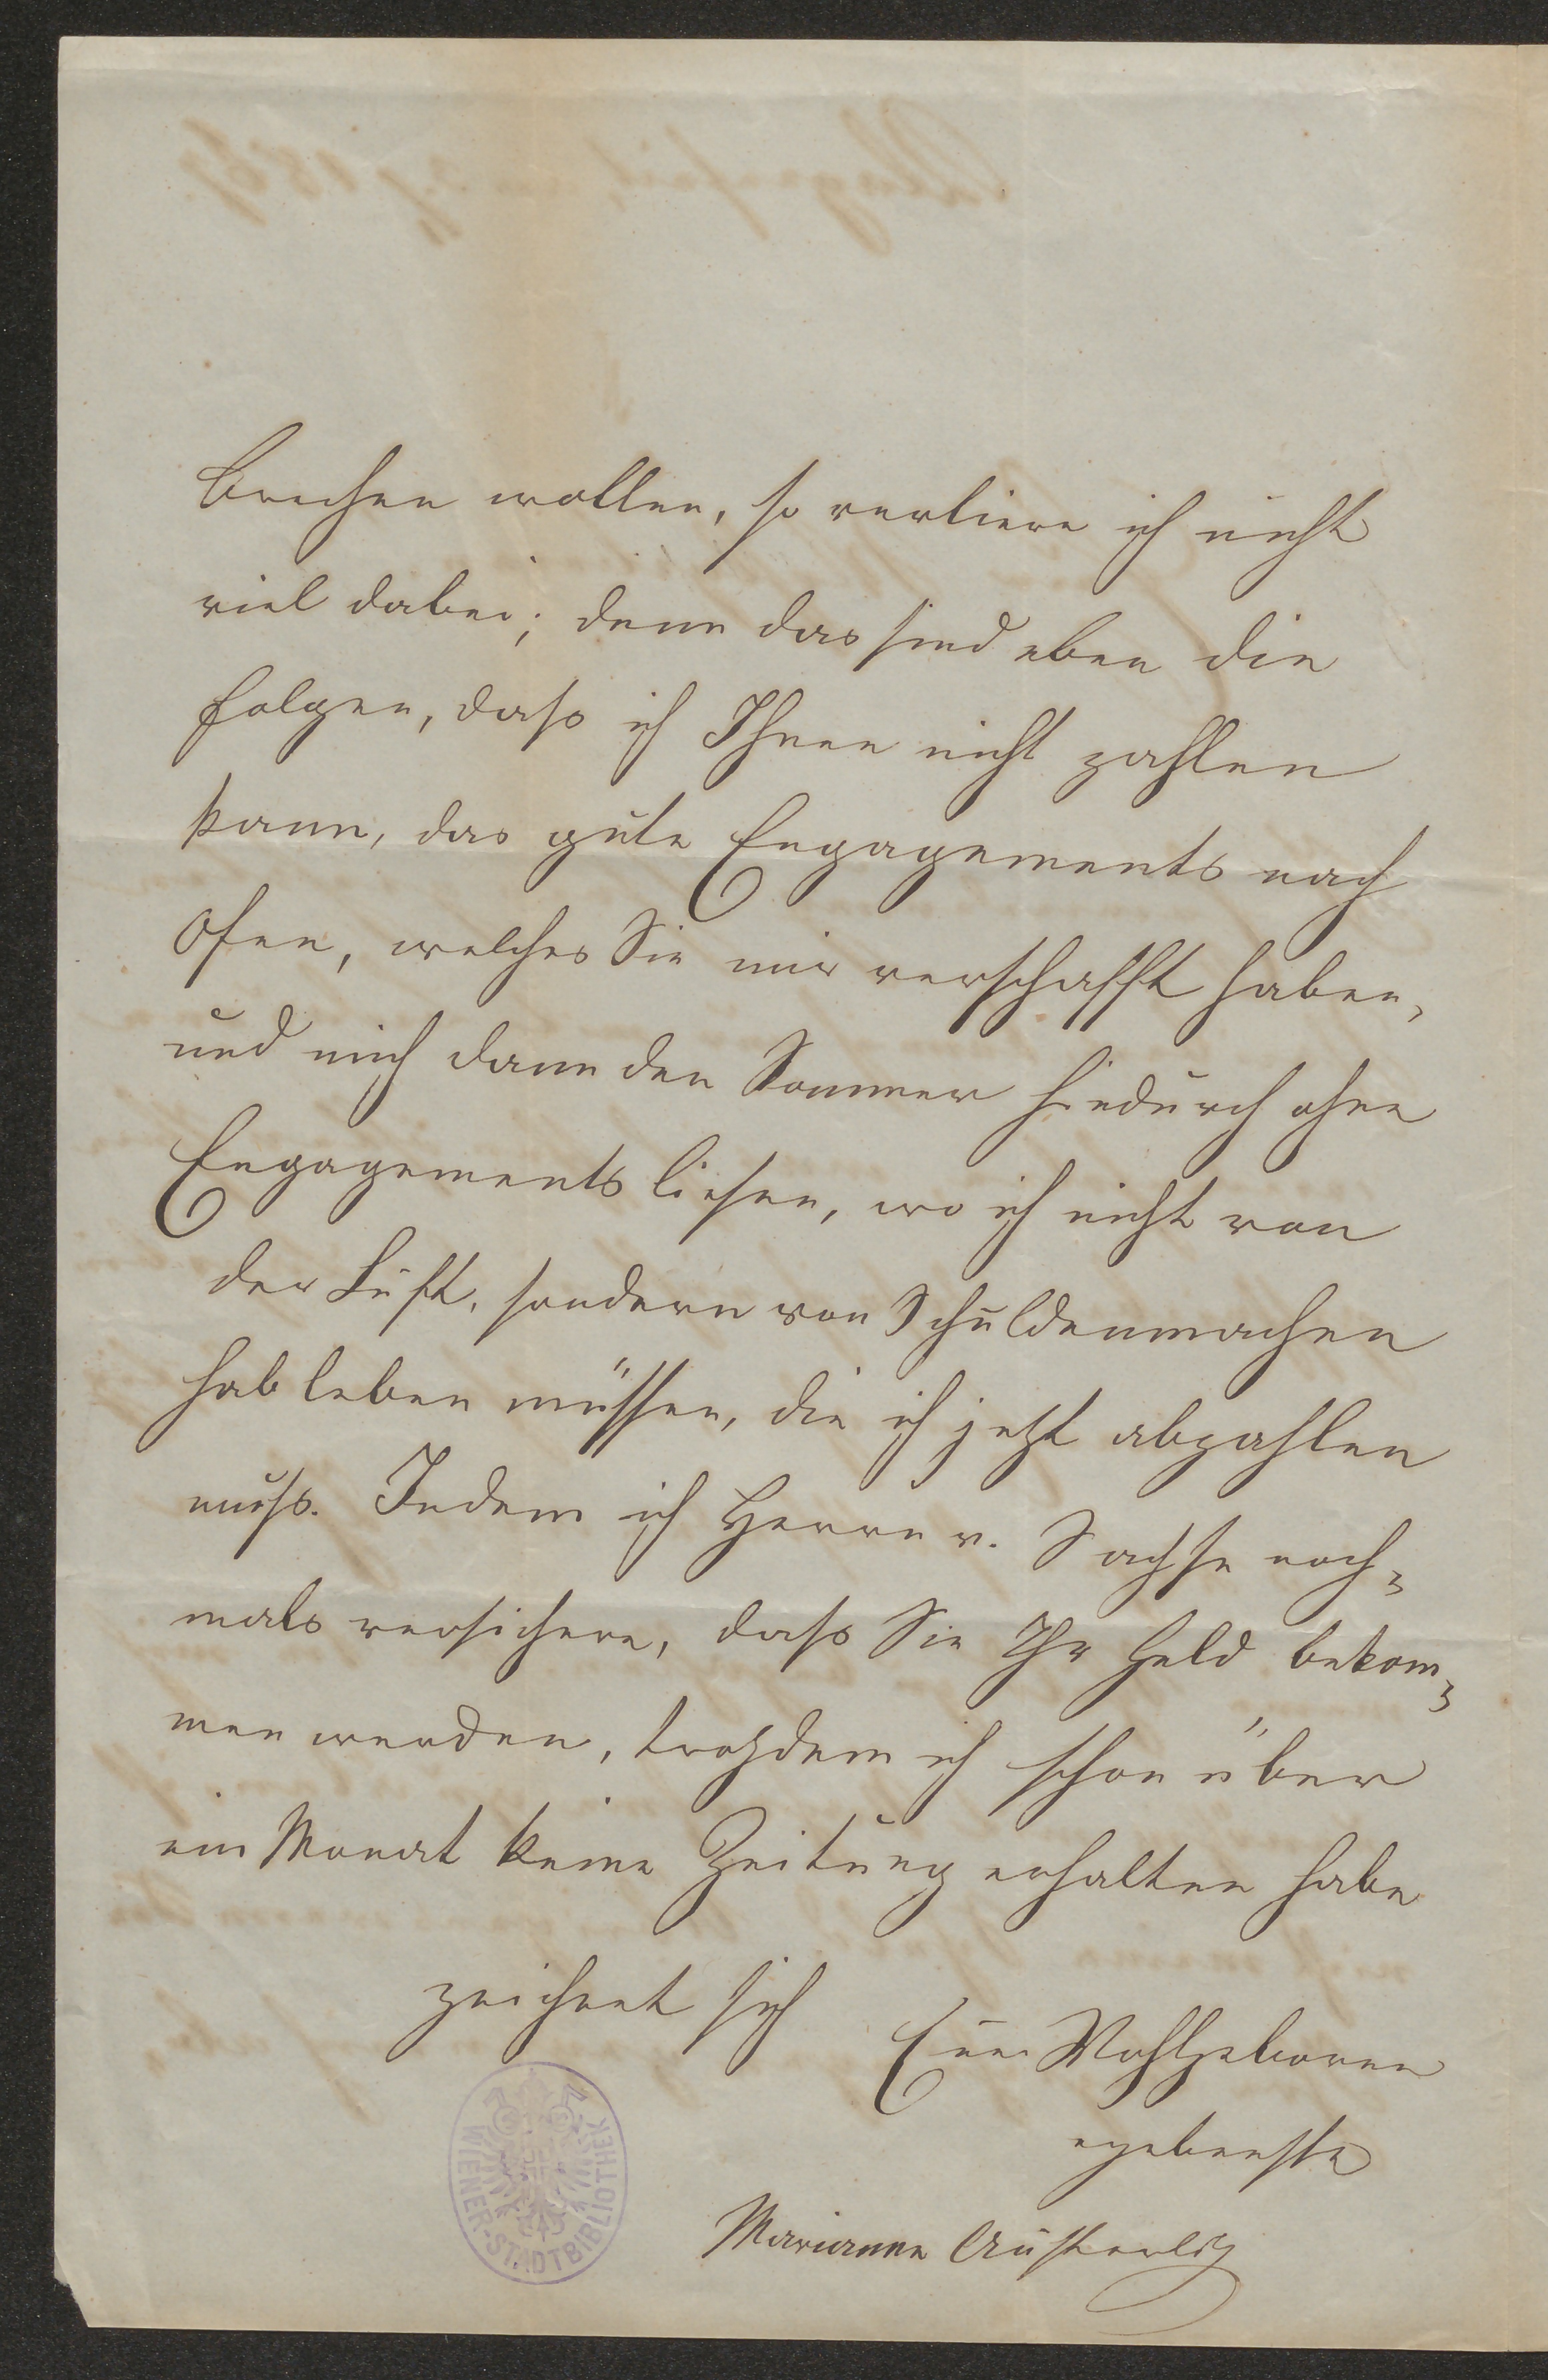 brechen wollen, so verliere ich nicht
viel dabei; denn das sind eben die
Folgen, daß ich Ihnen nicht zahlen
kann, das gute Engagements nach
Ofen, welches Sie mir verschafft haben,
und mich dann den Sommer hindurch ohne
Engagements liesen, wo ich nicht von
der Luft, sondern von Schuldenmachen
hab leben müssen, die ich jetzt abzahlen
muß. Indem ich Herrn v. Sachse noch-
mals versichere, daß Sie Ihr Geld bekom-
men werden, trotzdem ich schon über
ein Monat keine Zeitung erhalten habe
zeichnet sich
Euer Wohlgeboren
egebenste
Marianne Austerlitz
WIENER-STADTBIBLIOTHEK